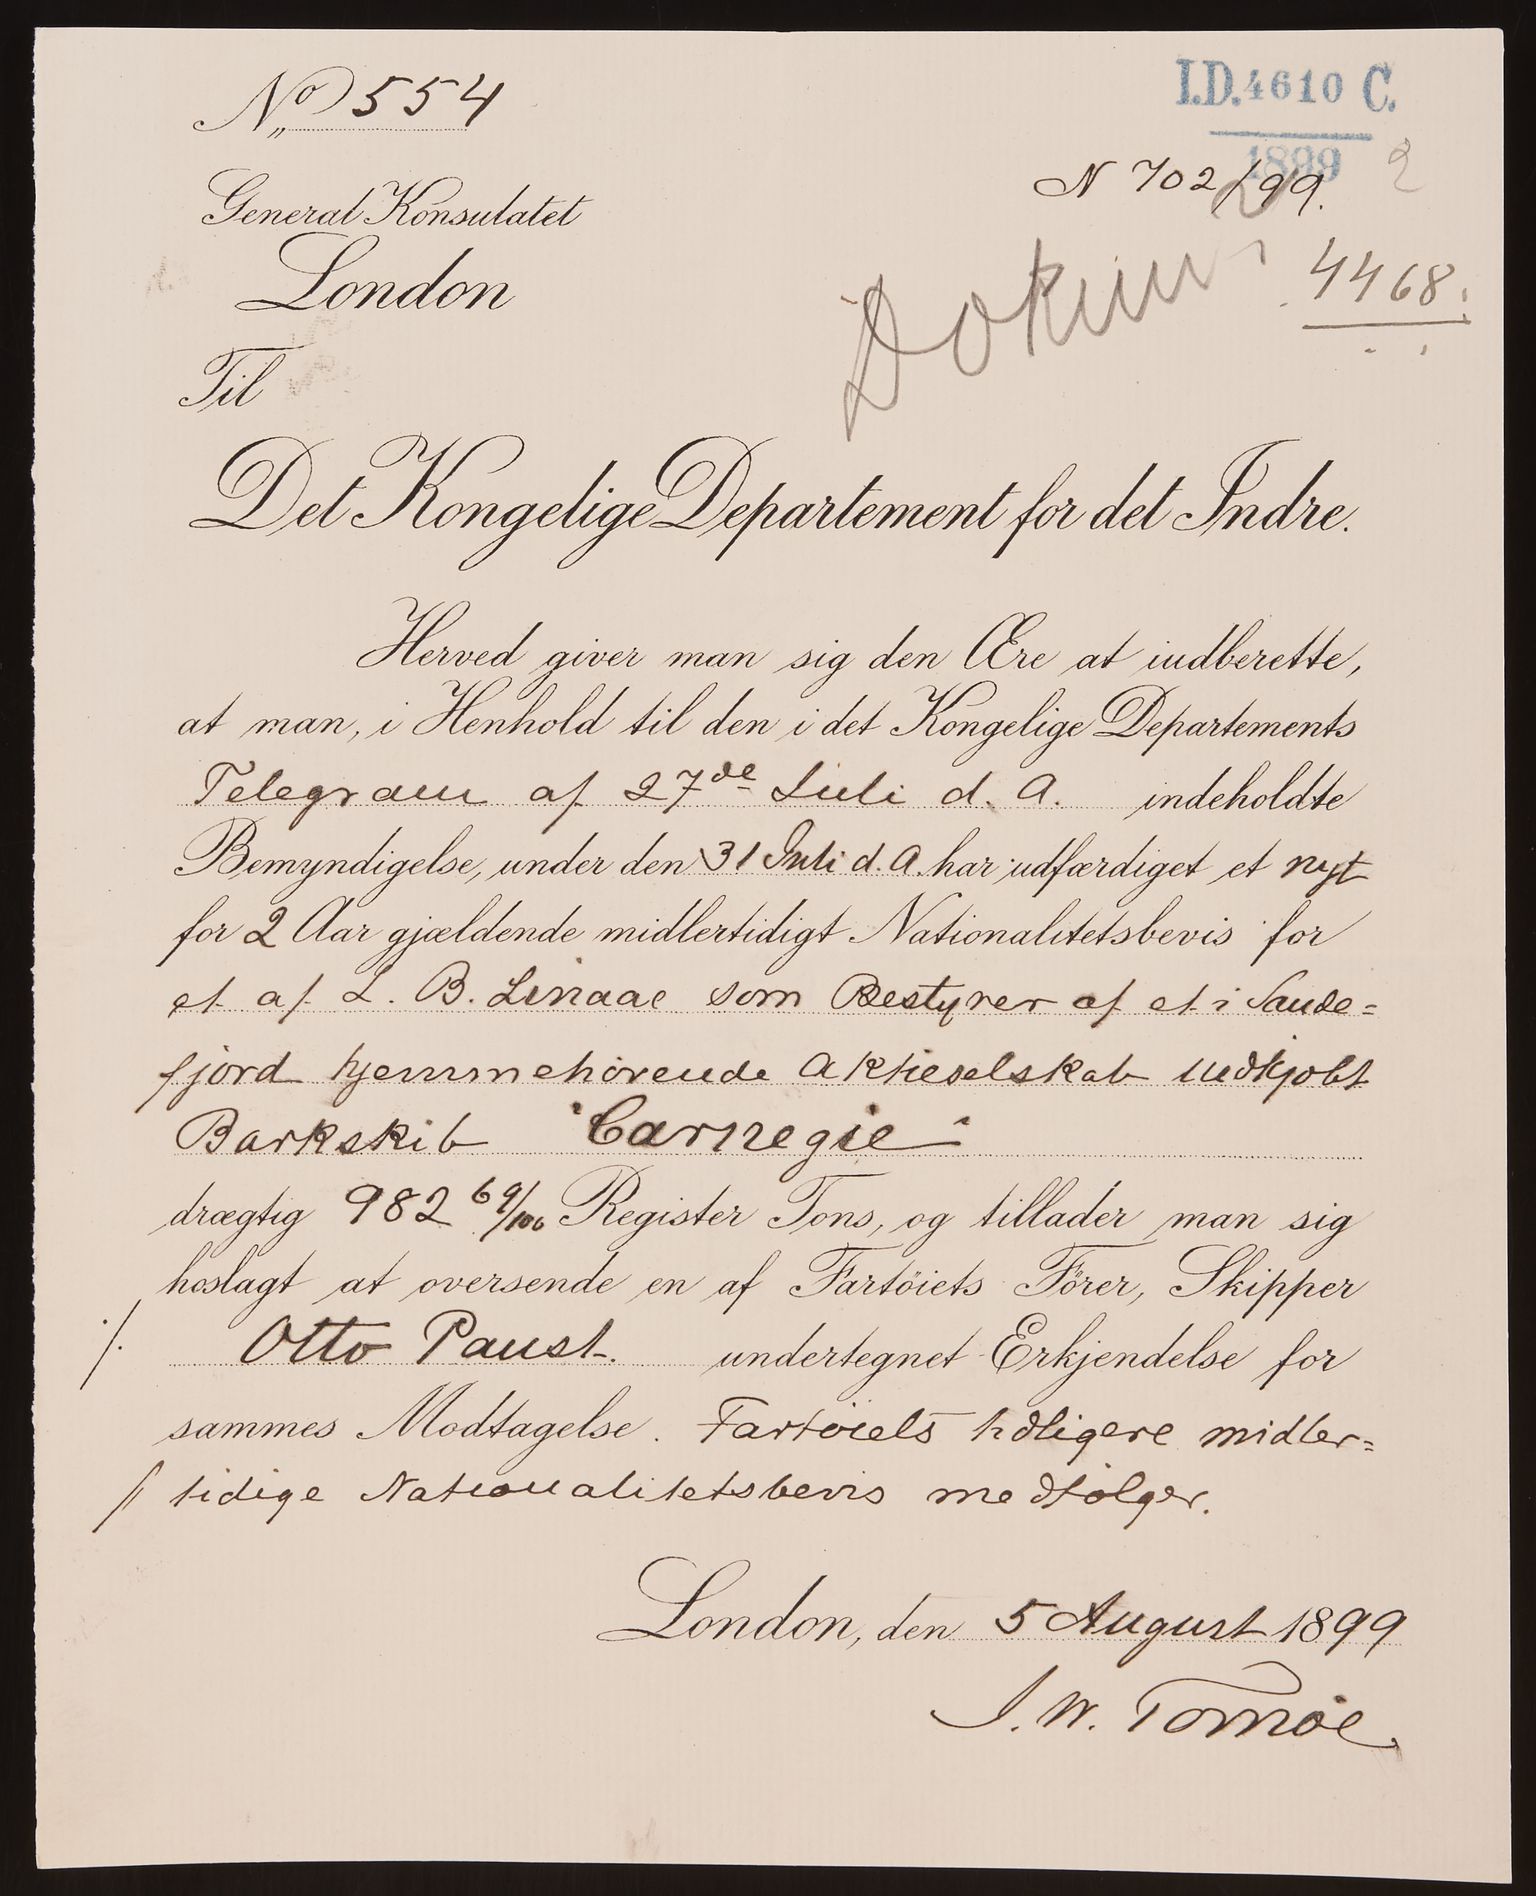 No 554
I.D. 4610 C.
1899
2
N 702/99.
General Konsulatet
London
Dokum
4468.
Til
Det Kongelige Departement for det Indre.
Herved giver man sig den Ære at indberette,
at man, i Henhold til den i det Kongelige Departements
Telegram af 27de Juli d. A. indeholdte
Bemyndigelse, under den 31 Juli d. A. har udfærdiget et nyt
for 2 Aar gjældende midlertidigt Nationalitetsbevis for
et af L. B. Linaae som Bestyrer af et i Sande=
fjord hjemmehörende Aktieselskab indkjobt
Barkskib "Carnegie"
drægtig 982 69/100 Register Tons, og tillader man sig
hoslagt at oversende en af Fartöiets Förer, Skipper
./. Otto Paust. undertegnet Erkjendelse for
sammes Modtagelse. Fartöiets tidligere midler=
tidige Nationalitetsbevis medfölger.
London, den 5 August 1899